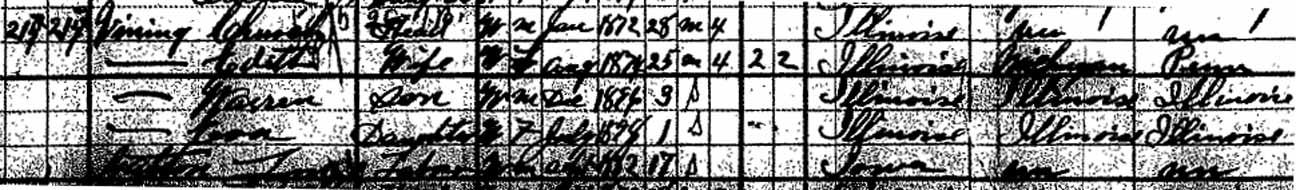 Vining Head W m Jan 1872 28 m 4 Illinois un un
— Edith Wife W F Aug 1874 25 m 4 2 2 Illinois Michigan Penn
— Warren Son W m Dec 1896 3 S Illinois Illinois Illinois
— Daughter W F July 1898 1 S Illinois Illinois Illinois
W m 1882 17 S Iowa un un